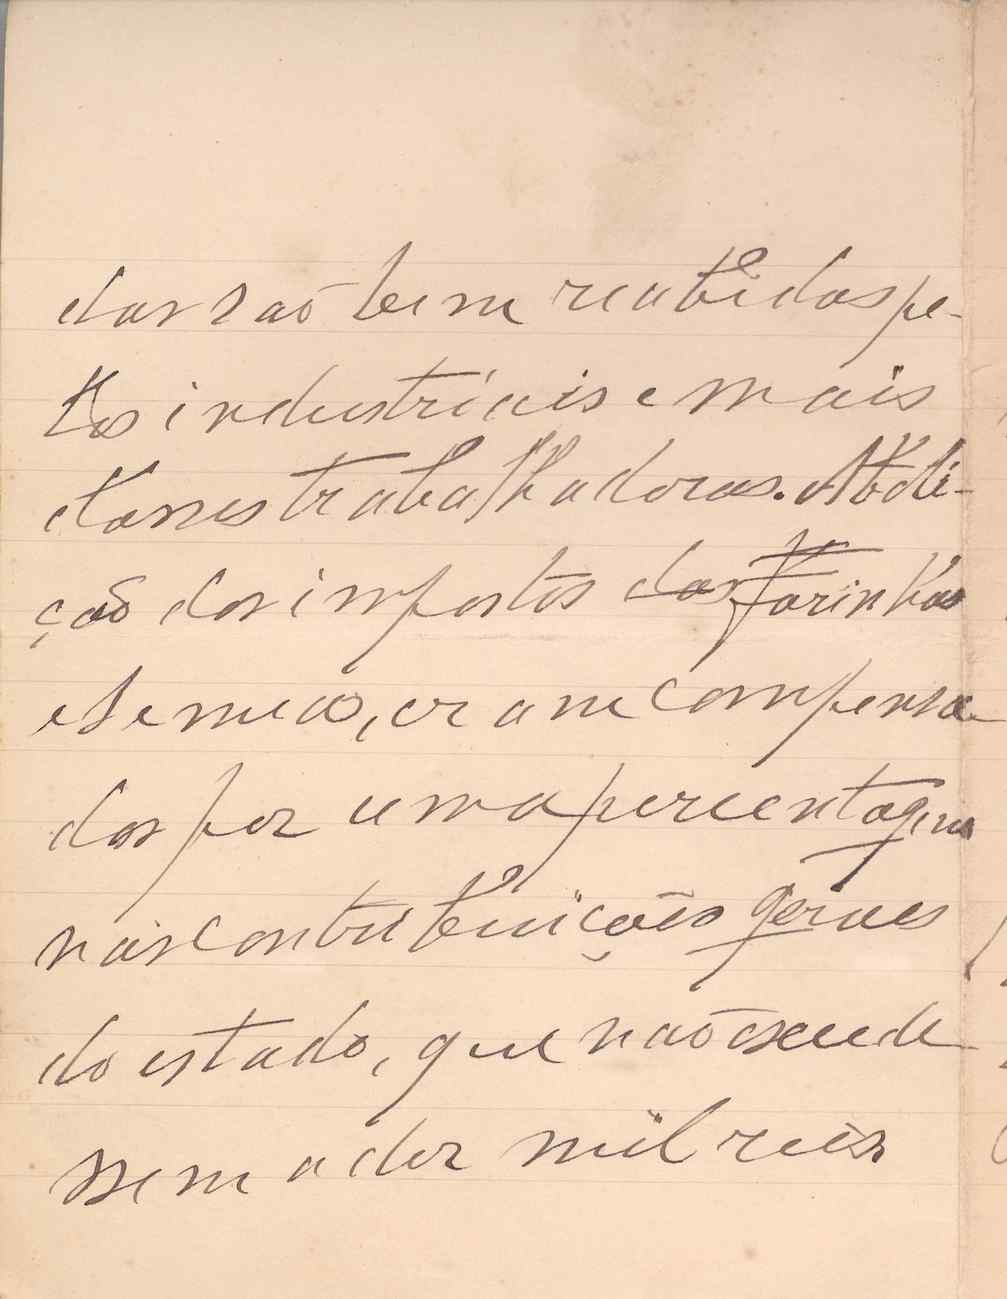 das são bem recebidas pe-
los industriais e mais
classes trabalhadoras. Aboli-
ção dos impostos das farinhas
e semeas, eram compensa-
dos por uma percentagem
nas contribuições geraes
do estado, que não excede-
ssem a dez mil reis